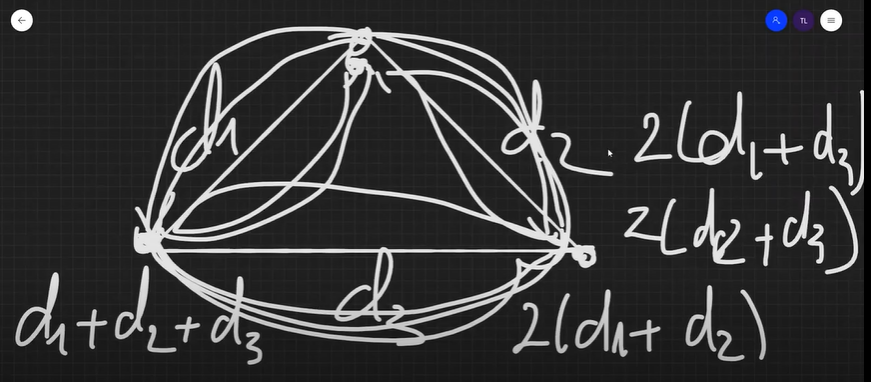 TL
d1
d2
2(d1+d3)
2(d2+d3)
d3
d1+d2+d3
2(d1+d2)